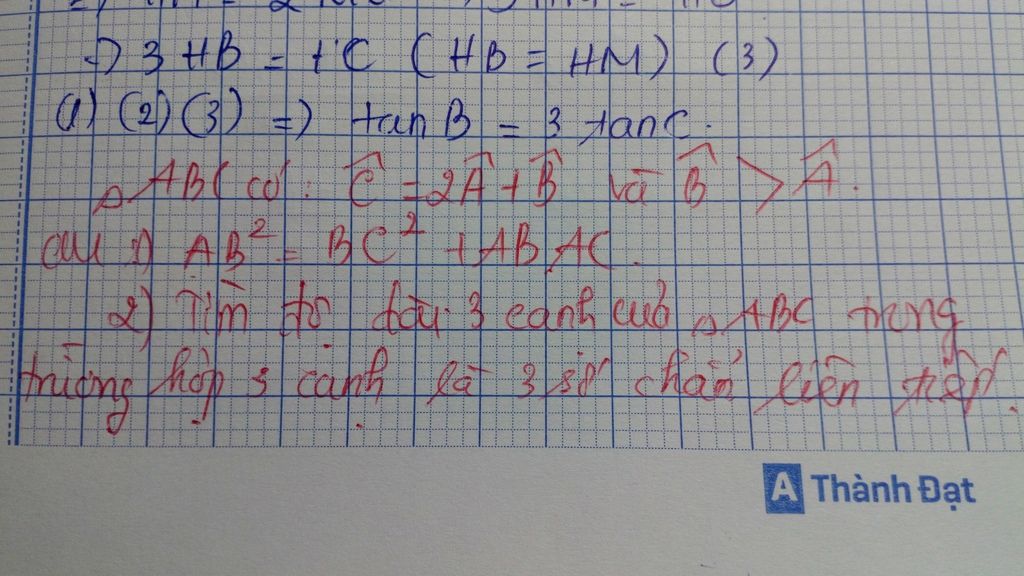 => 3 HB = HC (HB = HM) (3)
(1) (2) (3) => tan B = 3 tan C.
△ ABC có: Ĉ = 2Â + B̂ và B̂ > Â.
cm 1) AB² = BC² + AB.AC.
2) Tìm độ dài 3 cạnh của △ ABC trong
trường hợp 3 cạnh là 3 số chẵn liên tiếp.
A Thành Đạt